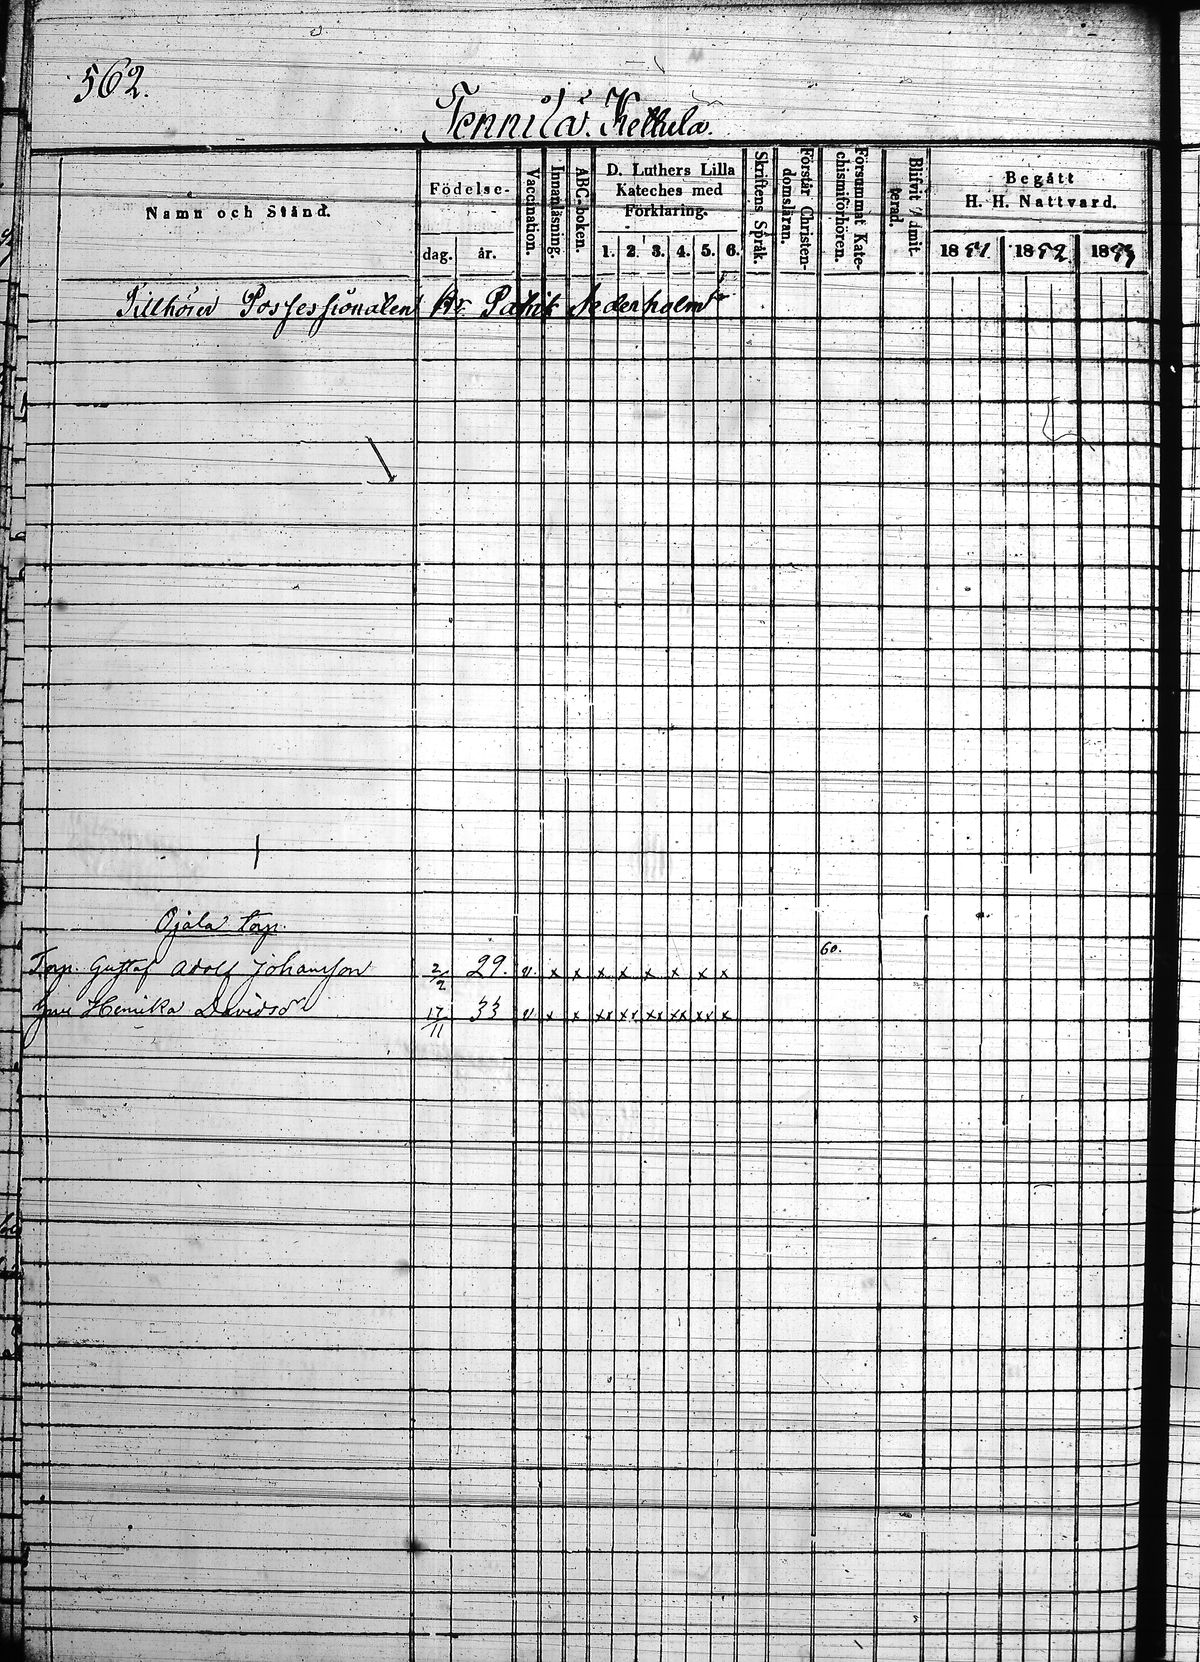 562.
Tennilä. Kettula.
Namn och Stånd.
Födelse-
dag. år.
Vaccination.
Innanläsning.
ABC-boken.
D. Luthers Lilla
Kateches med
Förklaring.
1. 2. 3. 4. 5. 6.
Skriftens Språk
Förstår Christen-
domsläran.
Försummat Kate-
chismiförhören.
Blifvit Admit-
terad.
Begått
H. H. Nattvard.
1851. 1852. 1853
Tillhörer Possessionaten Hr Patrik Nederholm
Ojala torp.
60.
Torp. Gustaf Adolf Johansson 2/2 29. v. x x x x x x x x
Henrika Davidsdr 17/11 33 v. x x xx xx xx xx xx x